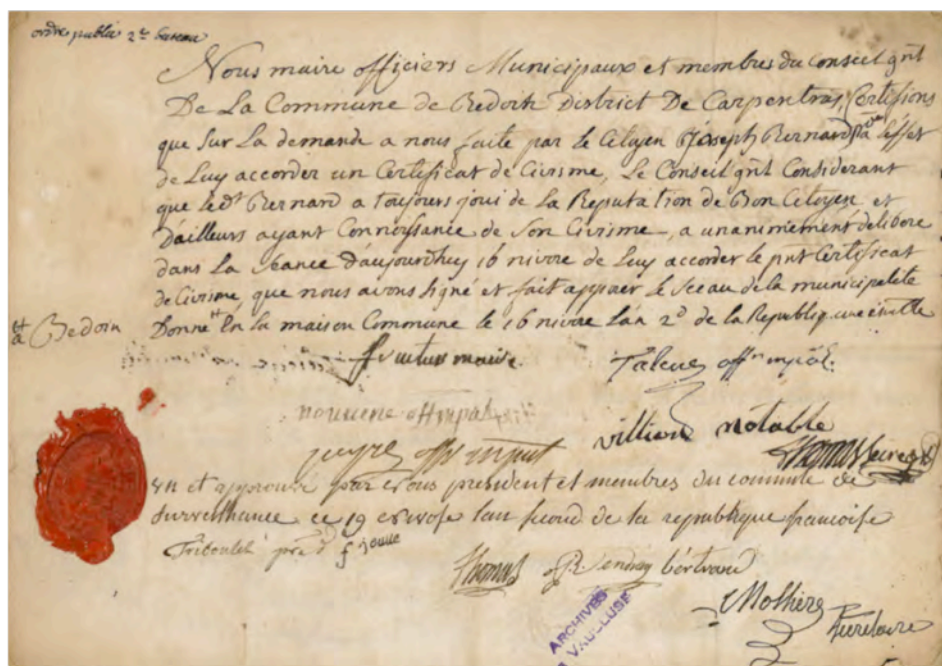 ordre public 2e bureau
Nous maire officiers Municipaux et membres du Conseil gnl
De La Commune de Bedoin District De Carpentras, Certifions
que Sur La demande a nous faite par le Citoyen Joseph Bernard à l'effet
de Luy accorder un Certificat de Civisme, Le Conseil gnl Considerant
que led.t Bernard a toujours joui de La Reputation de Bon Citoyen et
D'ailleurs ayant Connoissance de Son Civisme, a unanimement delibéré
dans La Seance d'aujourdhuy 16 nivose de Luy accorder le pnt Certificat
de Civisme, que nous avons signé et fait apposer le Sceau de la municipalité
a Bedoin
Donné En La maison Commune le 16 nivose L'an 2d de la Republiq. une et indle
maire.
off.r mpal.
off mpal
villiard notable
peyre off mpal
Thomas
vu et approuvé par nous president et membres du commité de
Surveillance ce 19 nivose lan second de la republique francoise
Triboulet pred f jouve
Thomas bertrand
Molliere
Secretaire
ARCHIVES
VAUCLUSE